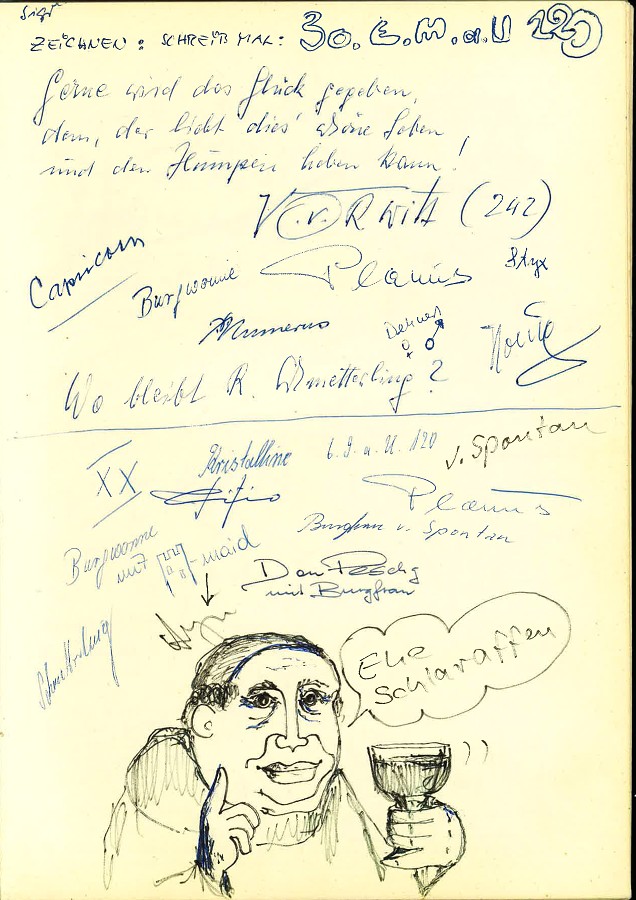 Sigi
ZEICHNEN: SCHREIB MAL: 30. E. M. a. U 120
Gerne wird das Glück gegeben,
dem, der liebt dies' schöne Leben
und den Humpen heben kann!
(242)
Capricorn
Burgwonne Planus Styx
Numerus
Wo bleibt R. Schmetterling?
v. Spontan
XX Kristalline a. U. 120
Planus
Burgfrau v. Spontan
Burgwonne
mit -maid
mit Burgfrau
Schmetterling
Ehe
Schlaraffen